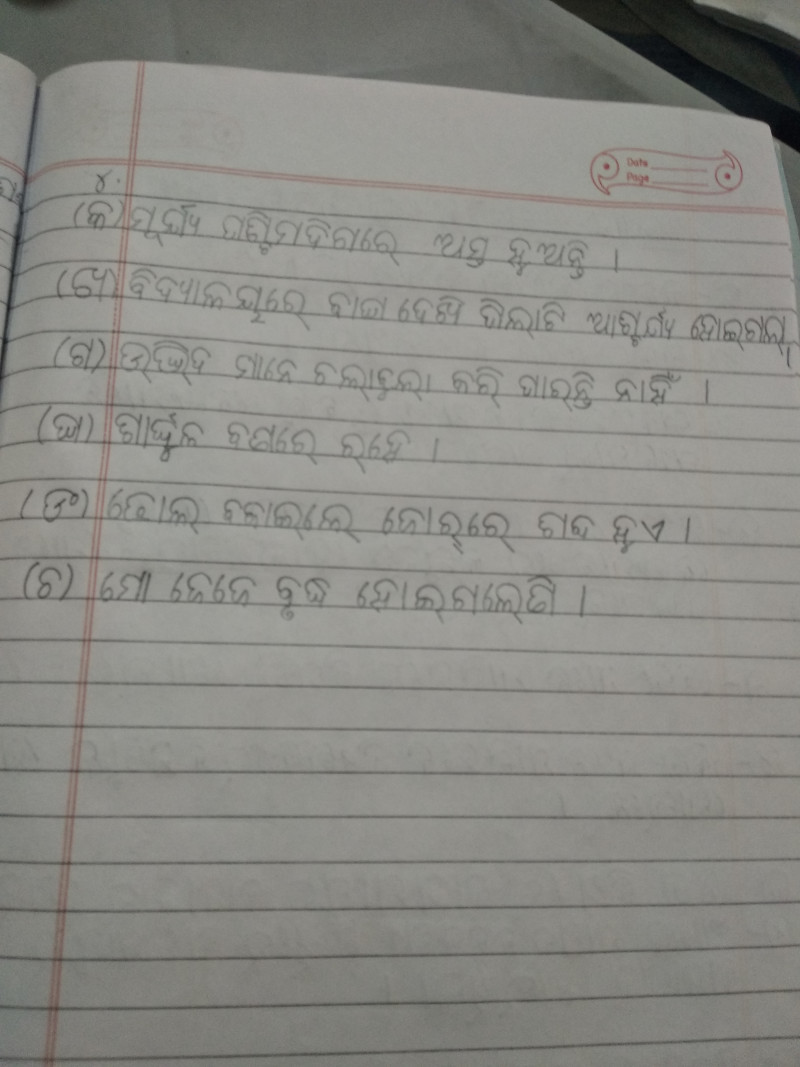 Date
Page
୪.
(କ) ସୂର୍ଯ୍ୟ ପଶ୍ଚିମଦିଗରେ ଅସ୍ତ ହୁଅନ୍ତି ।
(ଖ) ବିଦ୍ୟାଳୟରେ ବାଘ ଦେଖି ପିଲାଟି ଆଶ୍ଚର୍ଯ୍ୟ ହୋଇଗଲା ।
(ଗ) ଉଦ୍ଭିଦ ମାନେ ଚଲାବୁଲା କରି ପାରନ୍ତି ନାହିଁ ।
(ଘ) ଶାର୍ଦ୍ଦୁଳ ବଣରେ ରହେ ।
(ଙ) ଢୋଲ ବଜାଇଲେ ଜୋରରେ ଶବ୍ଦ ହୁଏ ।
(ଚ) ମୋ ଜେଜେ ବୃଦ୍ଧ ହୋଇଗଲେଣି ।